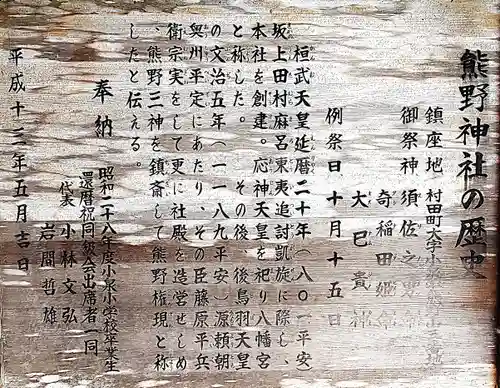 熊野神社の歴史
鎮座地 村田町大字小泉
御祭神 須佐之男命
奇稲田姫命
大巳貴神
例祭日 十月十五日
桓武天皇延暦二十年（八〇一平安）
坂上田村麻呂東夷追討凱旋に際し、
本社を創建。応神天皇を祀り八幡宮
と称した。その後、後鳥羽天皇
の文治五年（一一八九平安）源頼朝
奥州平定にあたり、その臣藤原平兵
衛宗実をして更に社殿を造営せしめ
、熊野三神を鎮斎して熊野権現と称
したと伝える。
奉納
昭和二十八年度小泉小学校卒業生
還暦祝同級会出席者一同
代表 小林文弘
岩間哲雄
平成十二年五月吉日